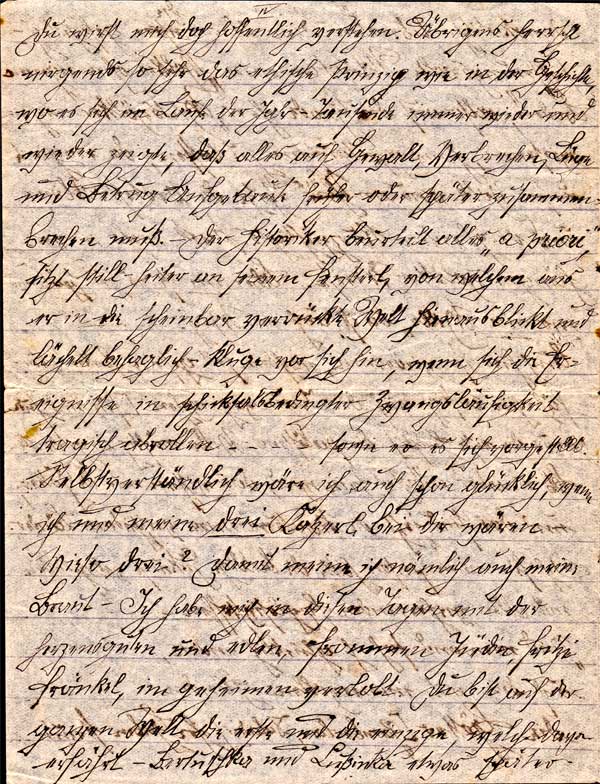 IV
Du wirst mich doch hoffentlich verstehen. Übrigens herrscht
nirgends so sehr das ethische Prinzip wie in der Geschichte,
wo es sich im Lauf der Jahr-Tausende immer wieder und
wieder zeigte, daß alles auf Gewalt, Verbrechen, Lüge
und Betrug Aufgebaute früher oder später zusammen-
brechen muß. – Der Historiker beurteilt alles „a priori",
sitzt still-heiter an seinem Fensterl, von welchem aus
er in die scheinbar verrückte Welt hinausblickt und
lächelt behaglich-kluge vor sich hin, wenn sich die Er-
eignisse in schicksalsbedingter Zwangsläufigkeit
tragisch abrollen - - - er es sich vorgestellt.
Selbstverständlich wäre ich auch schon glücklich, wenn
ich und meine drei Katzerl bei dir wären
Wieso drei? Damit meine ich nämlich auch meine
Braut – Ich habe mich in diesen Tagen mit der
herzensguten und edlen frommen Jüdin, Fritzi
Fränkel, im geheimen verlobt. Du bist auf der
ganzen Welt die erste und die einzige welche davon
erfährt – Bertuschka und etwas später -